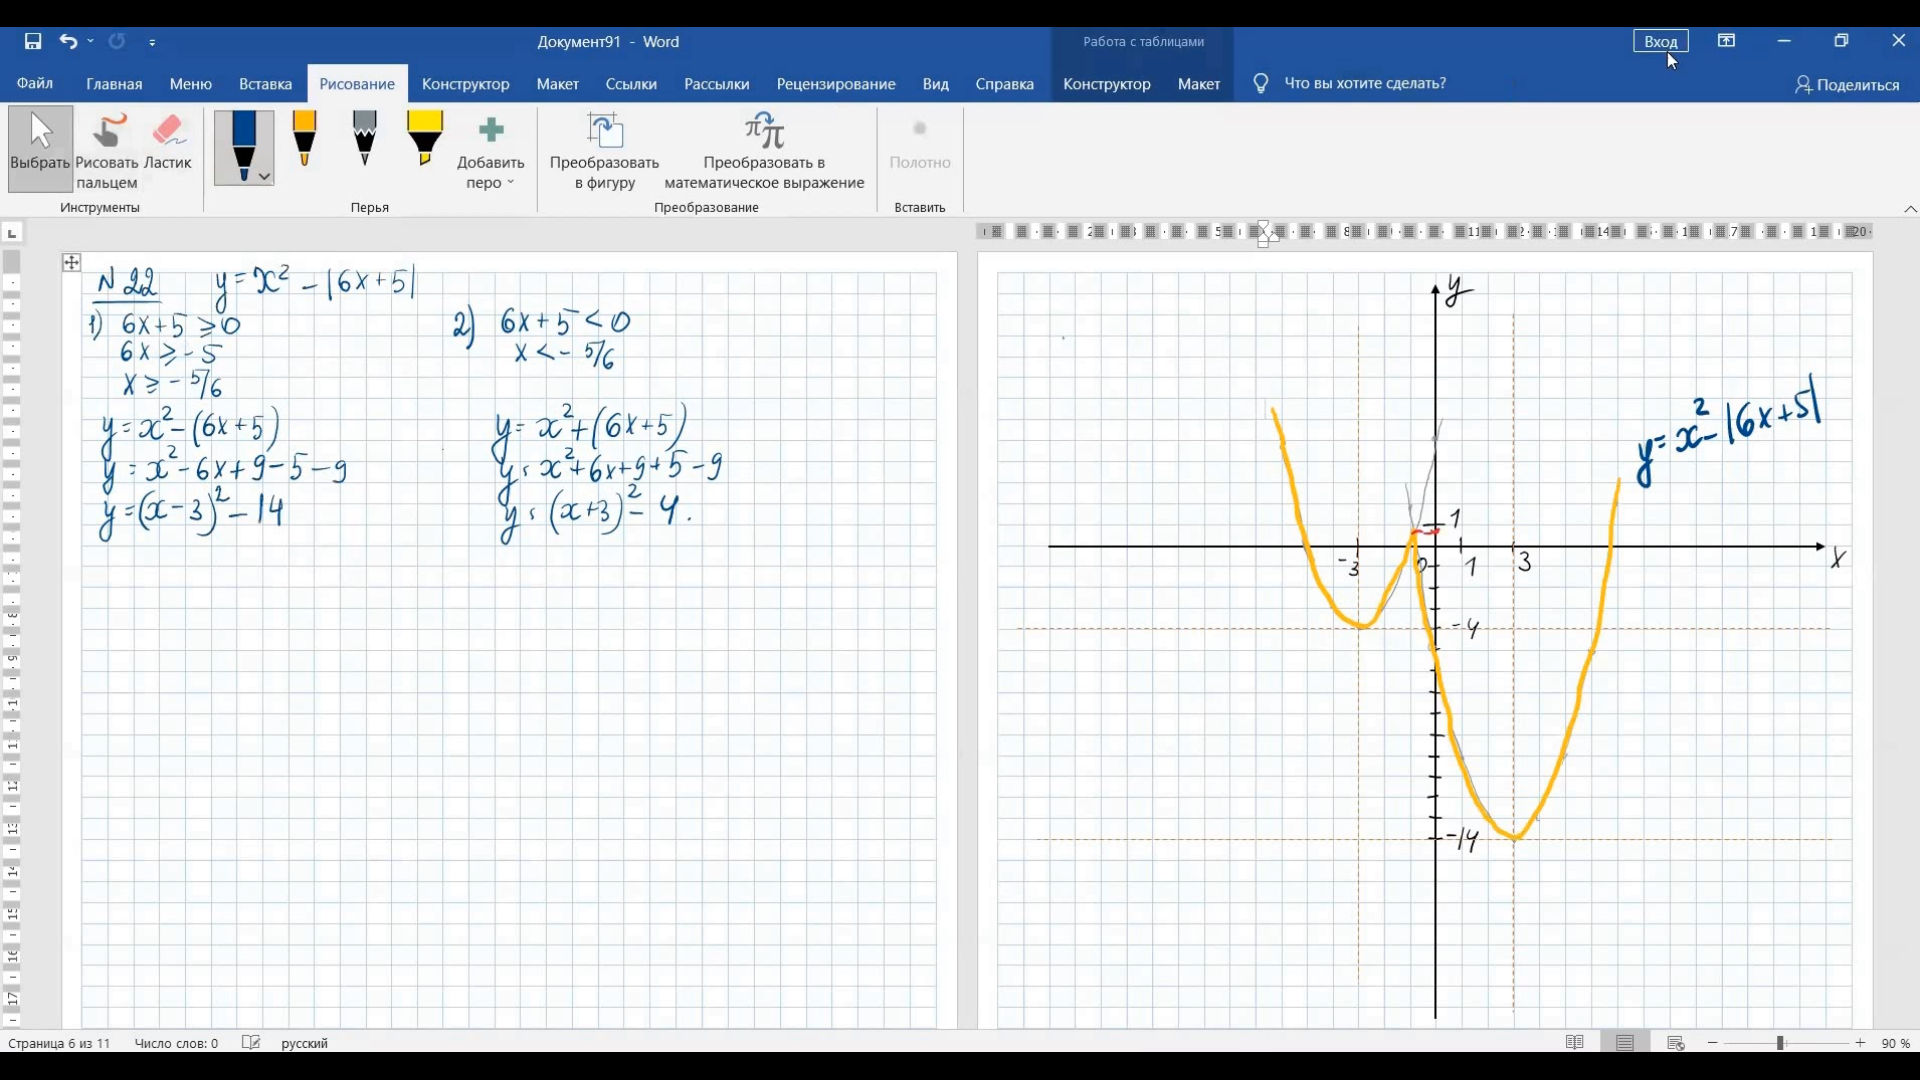 Документ91 - Word
Работа с таблицами
Вход
Файл Главная Меню Вставка Рисование Конструктор Макет Ссылки Рассылки Рецензирование Вид Справка Конструктор Макет Что вы хотите сделать? Поделиться
Выбрать Рисовать пальцем Ластик
Добавить перо
Преобразовать в фигуру
Преобразовать в математическое выражение
Полотно
Инструменты Перья Преобразование Вставить
N 22 y = x² - |6x+5|
1) 6x+5 ≥ 0
6x ≥ -5
x ≥ - 5/6
y = x² - (6x+5)
y = x² - 6x + 9 - 5 - 9
y = (x - 3)² - 14
2) 6x+5 < 0
x < - 5/6
y = x² + (6x+5)
y = x² + 6x + 9 + 5 - 9
y = (x+3)² - 4.
y
y = x² - |6x+5|
1
-3 0 1 3 x
-4
-14
Страница 6 из 11 Число слов: 0 русский 90 %